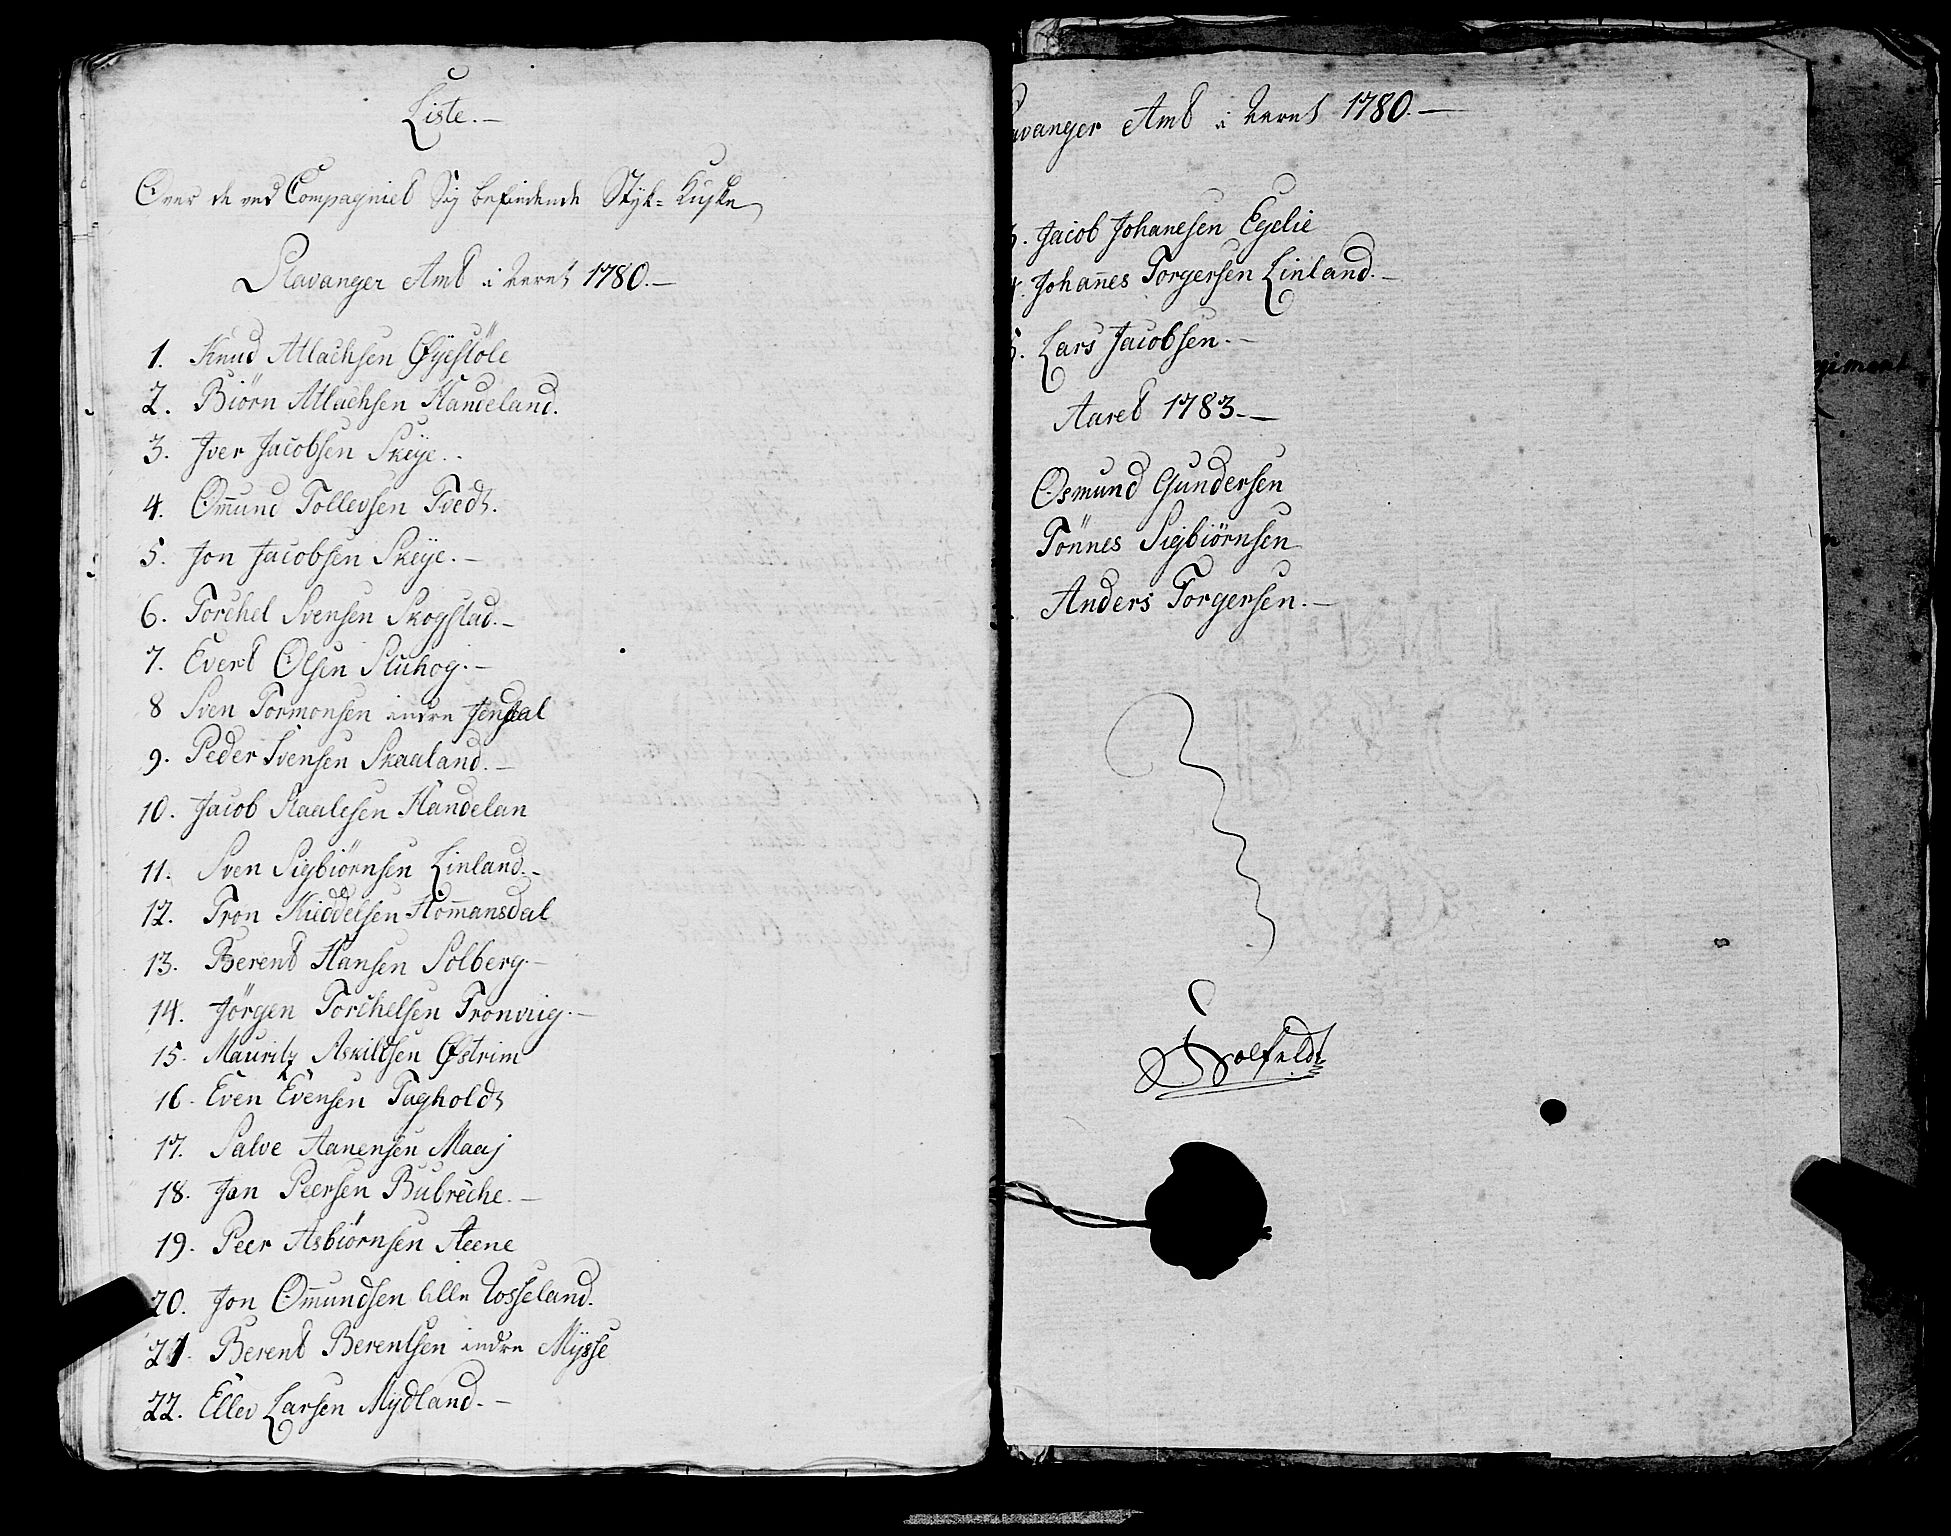 Liste.
Over de ved Compagniet Sig befindende Styk-Kuske
Stavanger Amt i Aaret 1780.
1. Knud Atlachsen Øÿestöle
2. Biörn Atlachsen Handeland.
3. Iver Jacobsen Skeÿe.
4. Om̄und Tollevsen Tvedt.
5. Jon Jacobsen Skeÿe.
6. Torchel Svensen Skogstad.
7. Evert Olsen Sluhog.
8 Sven Tormonsen indre
9. Peder Svensen Skaaland.
10. Jacob Staalesen Handelan
11. Sven Sigbiörnsen Linland.
12. Tron Kieddelsen Hom̄ansdal
13. Berent Hansen Solberg.
14. Jörgen Torchelsen Tronviig.
15. Mauritz Askildsen Østrim
16. Even Evensen Tagholdt
17. Salve Aanensen Maaj
18. Jan Peersen Bubreche.
19. Peer Asbiörnsen Steene
20. Jon Om̄undsen lille Rosseland.
21. Berent Berentsen indre Mÿsse
22. Ellev Larsen Mÿdland.
avanger Amt i Aaret 1780.
3. Jacob Johanesen Egelie
4. Johan̄es Torgersen Linland.
5. Lars Jacobsen.
Aaret 1783.
Osmund Gundersen
Tönnes Sigbiörnsen
Anders Torgersen.
giment